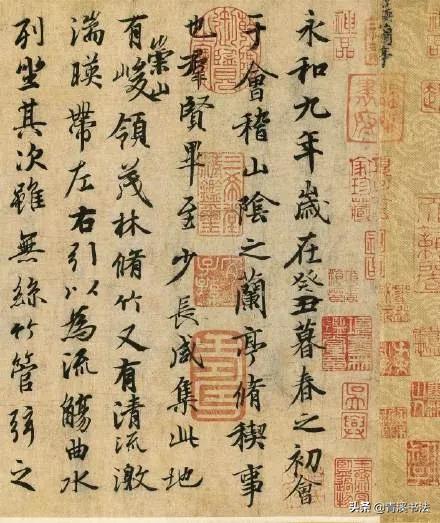 永和九年歲在癸丑暮春之初會
于會稽山陰之蘭亭脩稧事
也羣賢畢至少長咸集此地
有崇山峻領茂林脩竹又有清流激
湍暎帶左右引以為流觴曲水
列坐其次雖無絲竹管弦之
神品
头条 @青溪书法